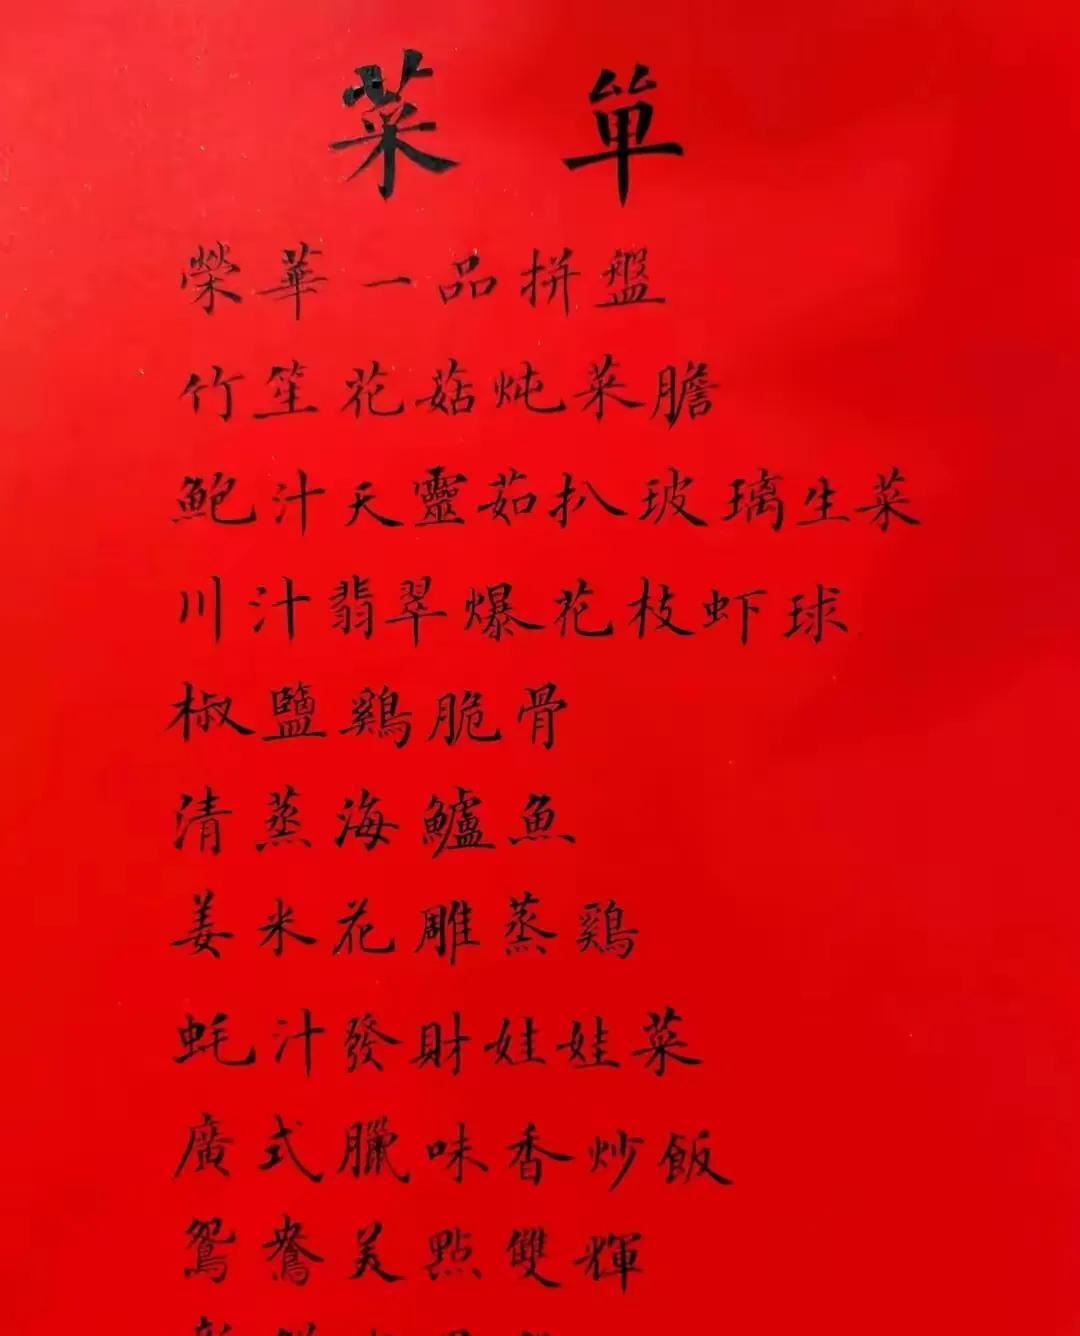 菜單
榮華一品拼盤
竹笙花菇炖菜膽
鮑汁天靈茹扒玻璃生菜
川汁翡翠爆花枝虾球
椒鹽鷄脆骨
清蒸海鱸魚
姜米花雕蒸鷄
蚝汁發財娃娃菜
廣式臘味香炒飯
鴛鴦美點雙輝